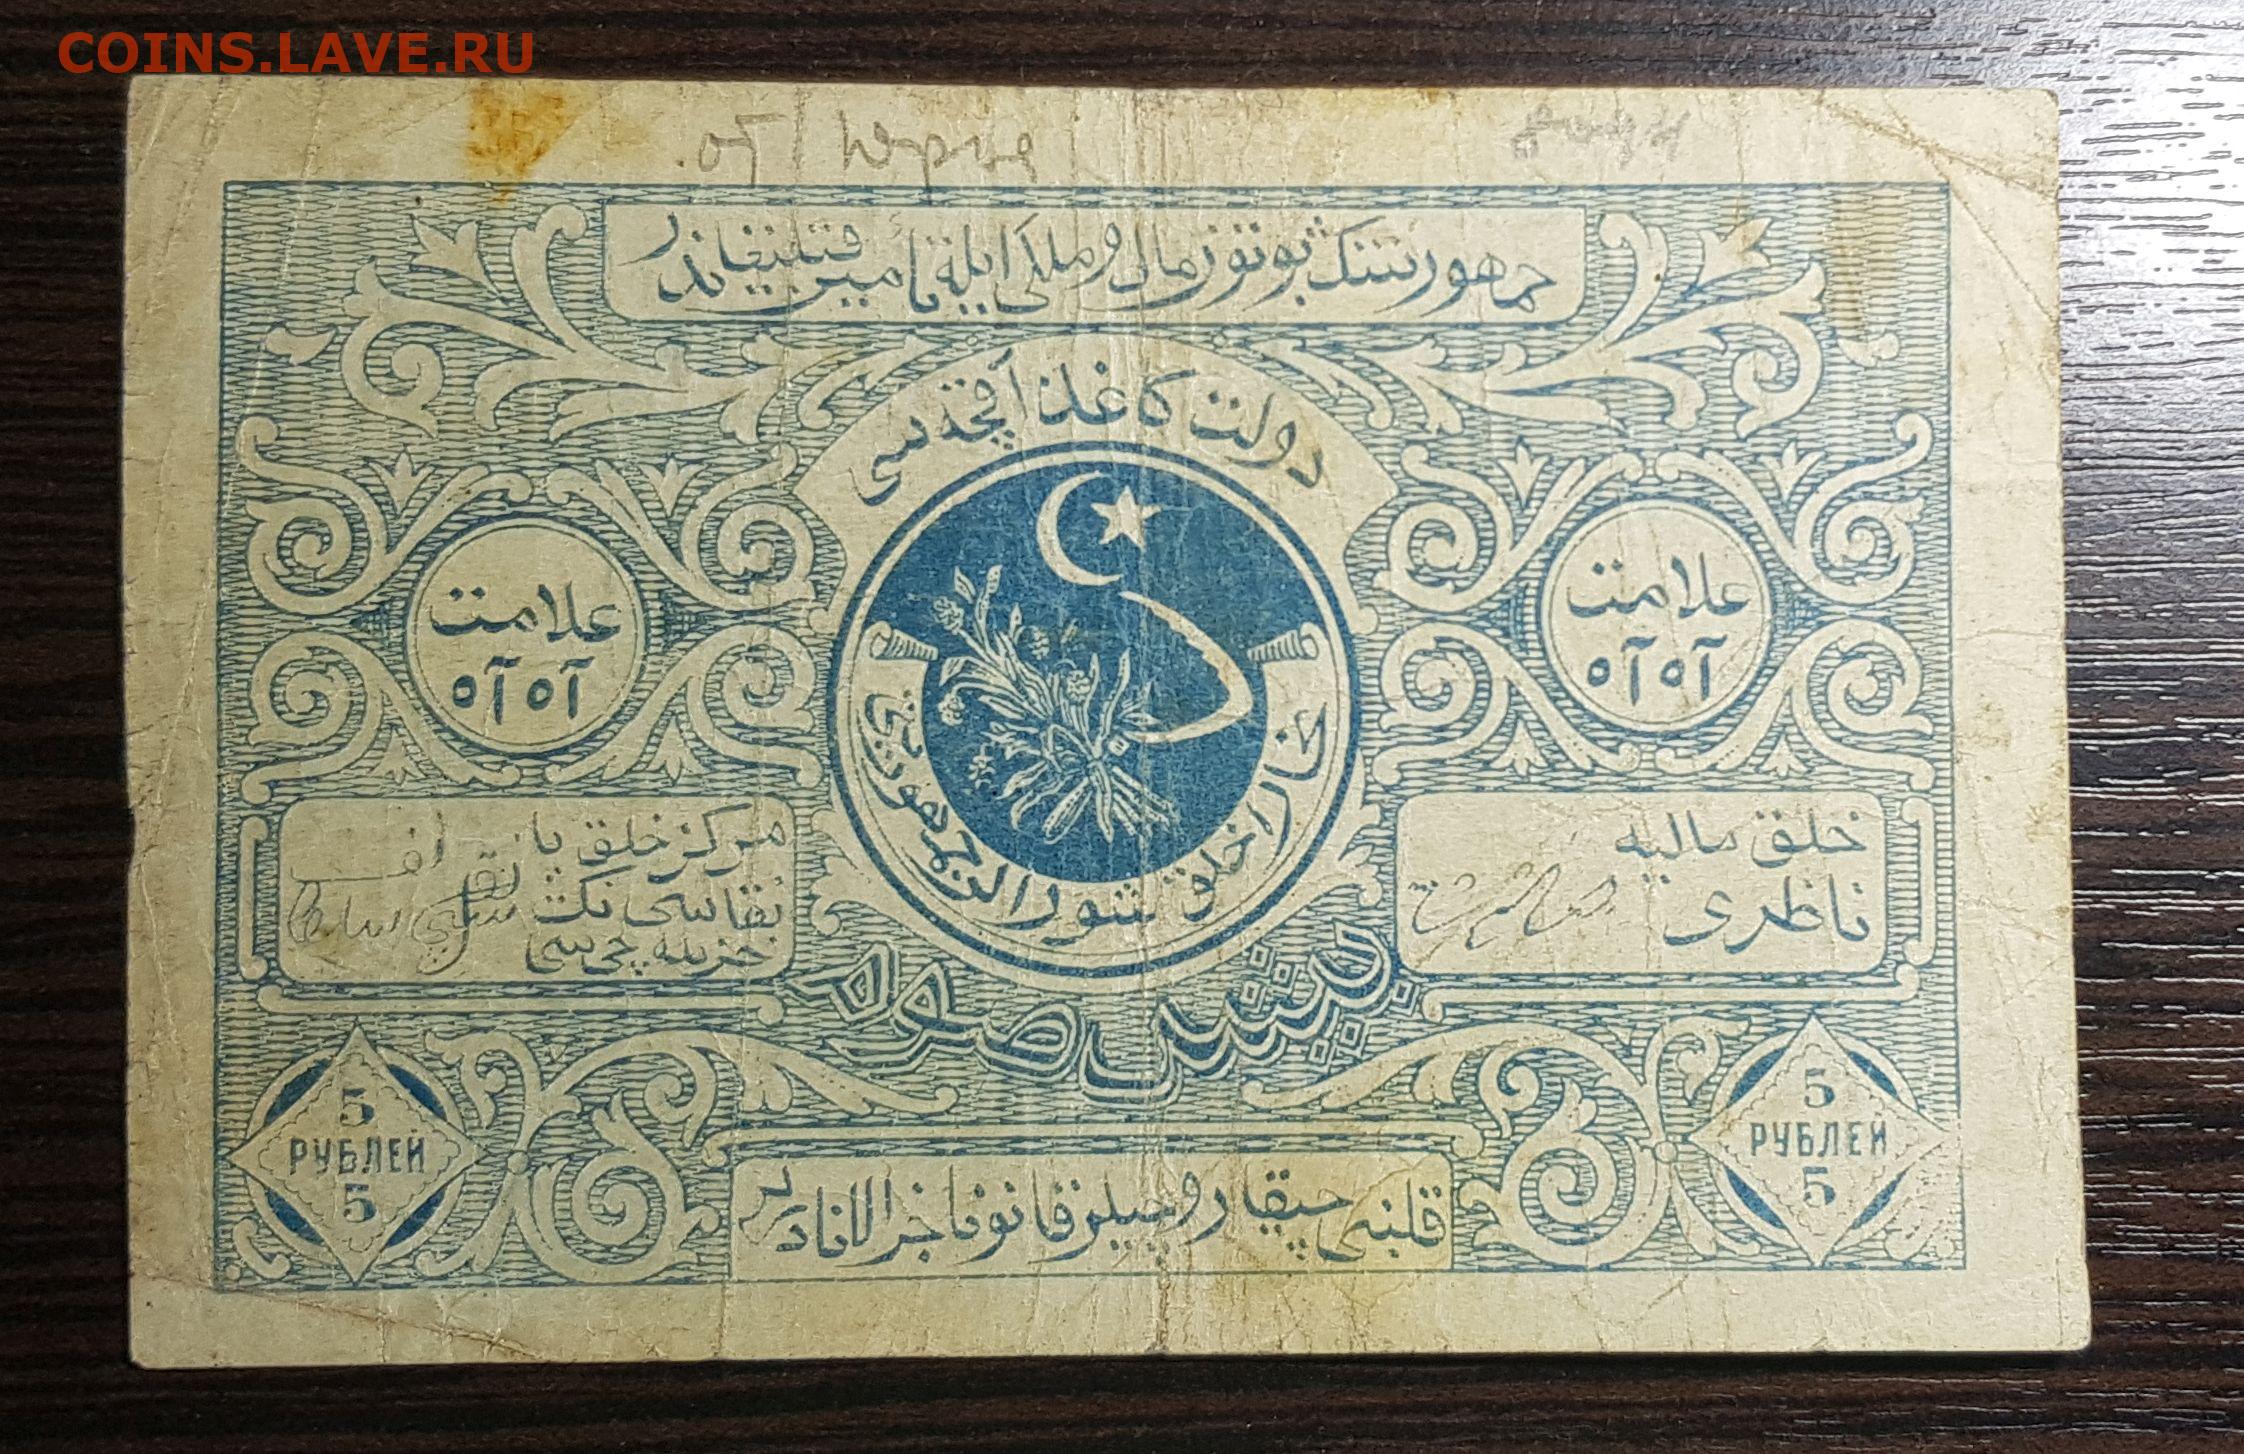 COINS.LAVE.RU
جمهوریتنڭ بوتون مال و ملکی ایله تأمین قیلینغاندر
دولت کاغذ آقچه سی
علامت
آ ٥ آ ٥
علامت
آ ٥ آ ٥
بخارا خلق شورالر جمهوریتی
خلق مالیه
ناظری
مرکز خلق
خزینه چی سی
بیش صوم
5
РУБЛЕЙ
5
5
РУБЛЕЙ
5
قلبنی چیقاروچیلر قانوناً جزالانادر